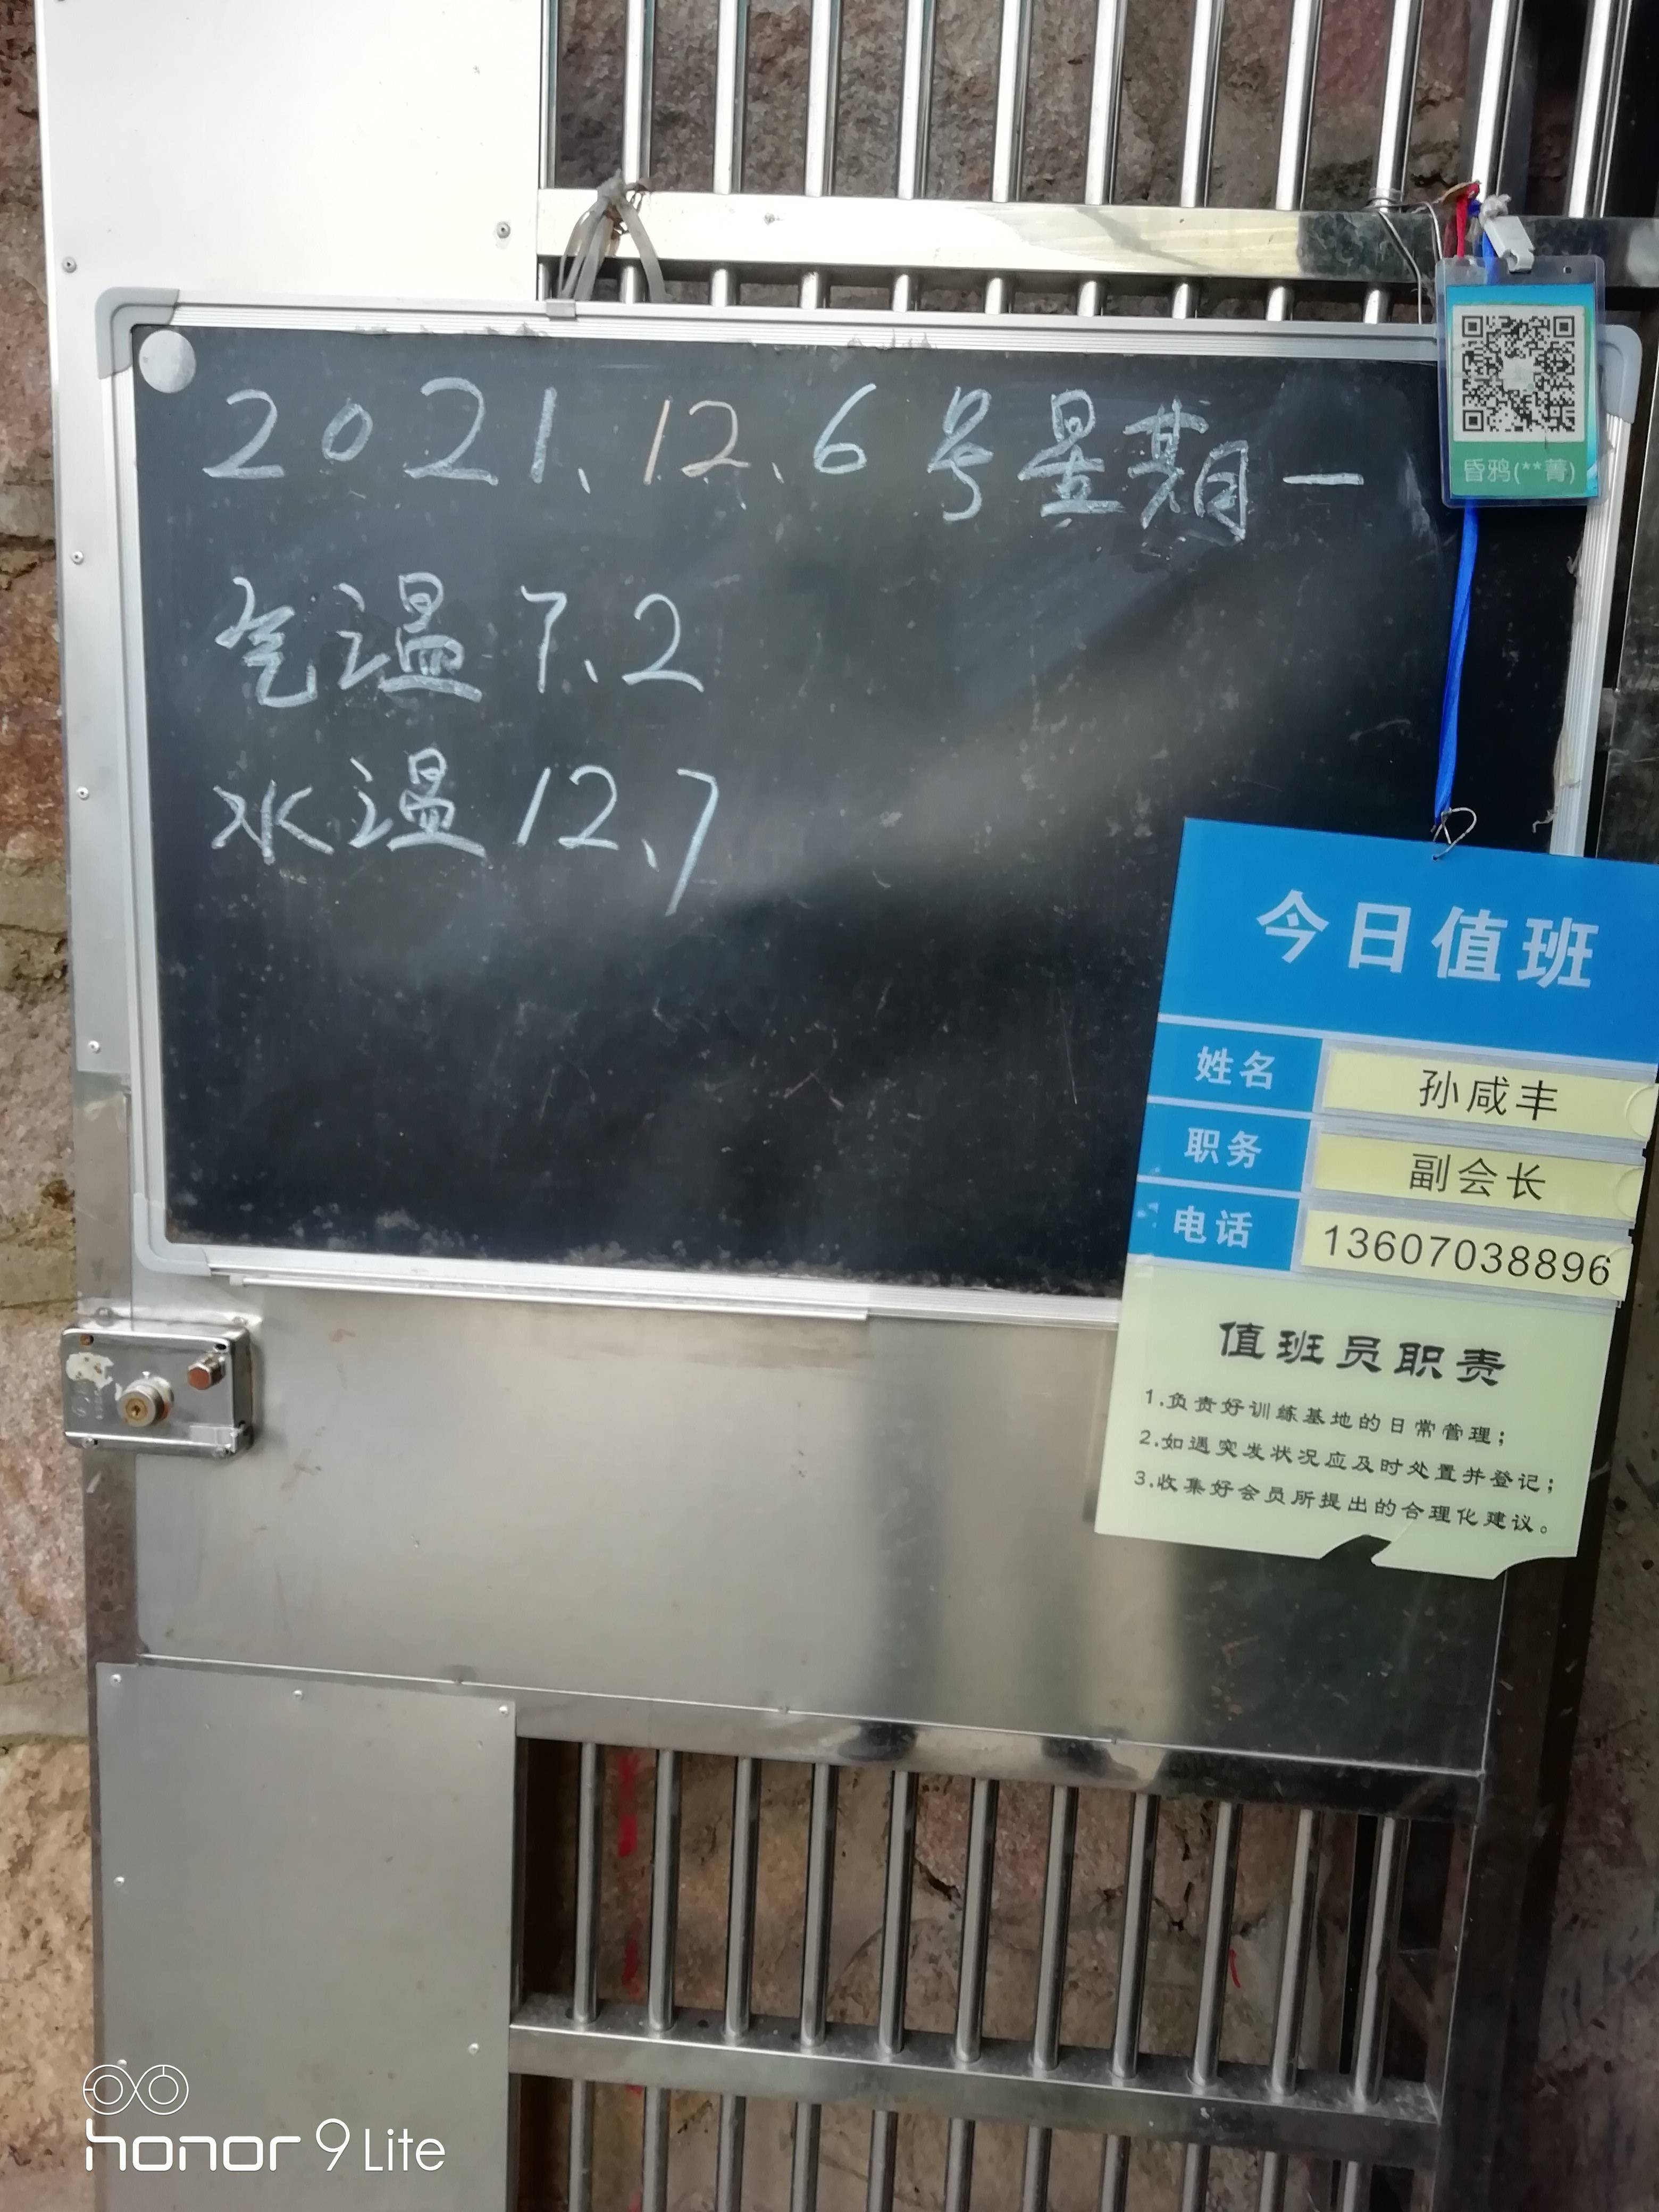 2021、12、6号星期一
气温7、2
水温12、7
昏鸦(**菁)
今日值班
姓名 孙咸丰
职务 副会长
电话 13607038896
值班员职责
1.负责好训练基地的日常管理；
2.如遇突发状况应及时处置并登记；
3.收集好会员所提出的合理化建议。
honor 9 Lite